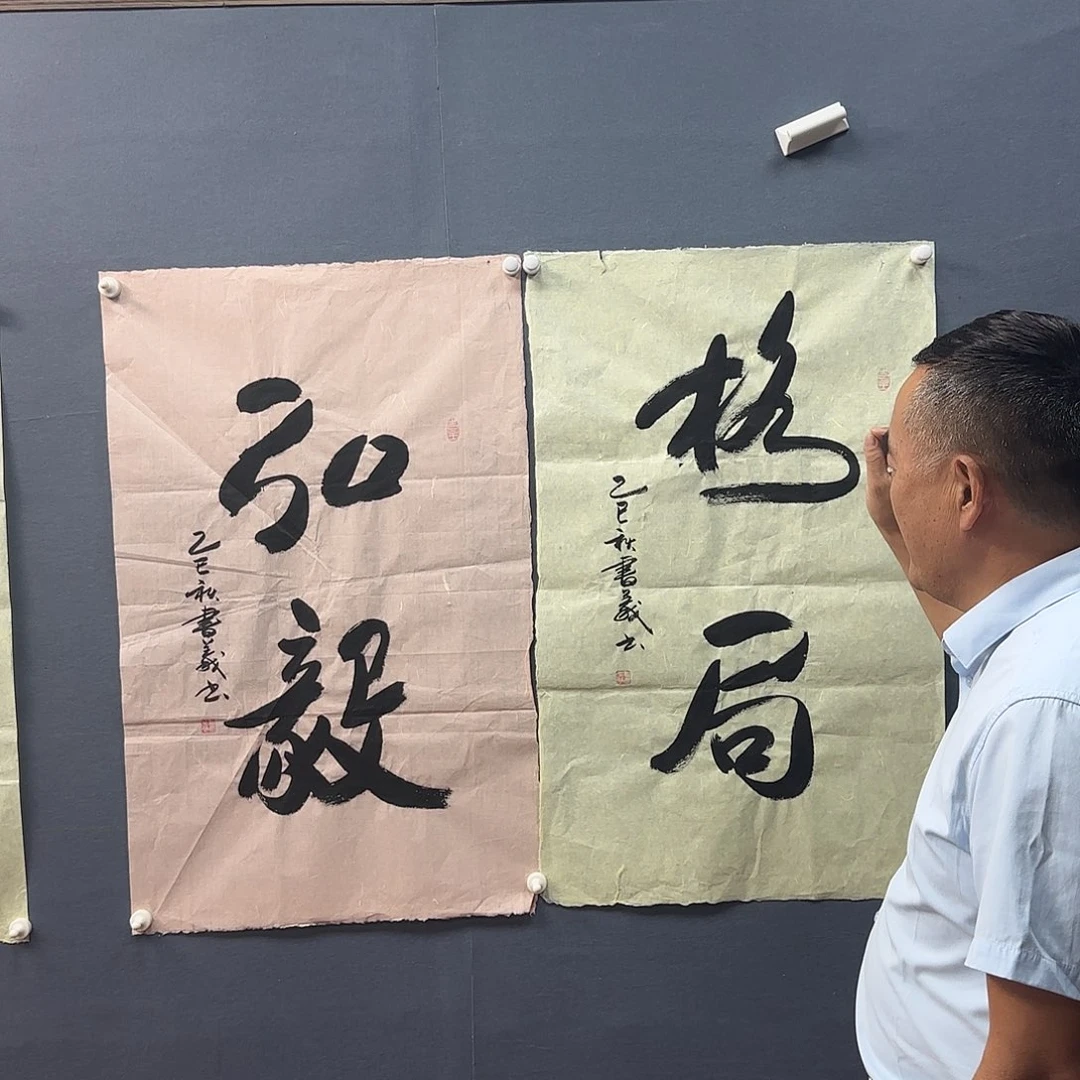 格局
乙巳秋書義书
弘毅
乙巳秋書義书